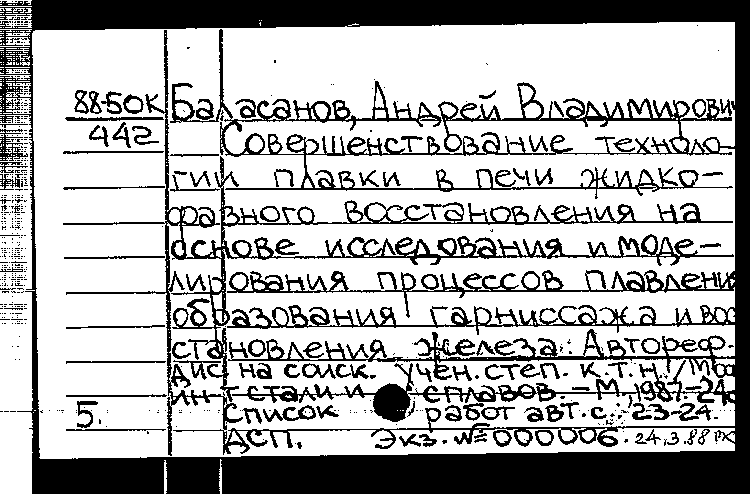 88-50К Баласанов, Андрей Владимирович
442 Совершенствование техноло-
гии плавки в печи жидко-
фазного восстановления на
основе исследования и моде-
лирования процессов плавления
образования гарниссажа и вос
становления железа: Автореф.
дис. на соиск. учен. степ. к.т.н. /Моск
ин-т стали и сплавов. - М., 1987.-24с
5. список работ авт. с. 23-24.
ДСП. Экз. № 000006. 24.3.88